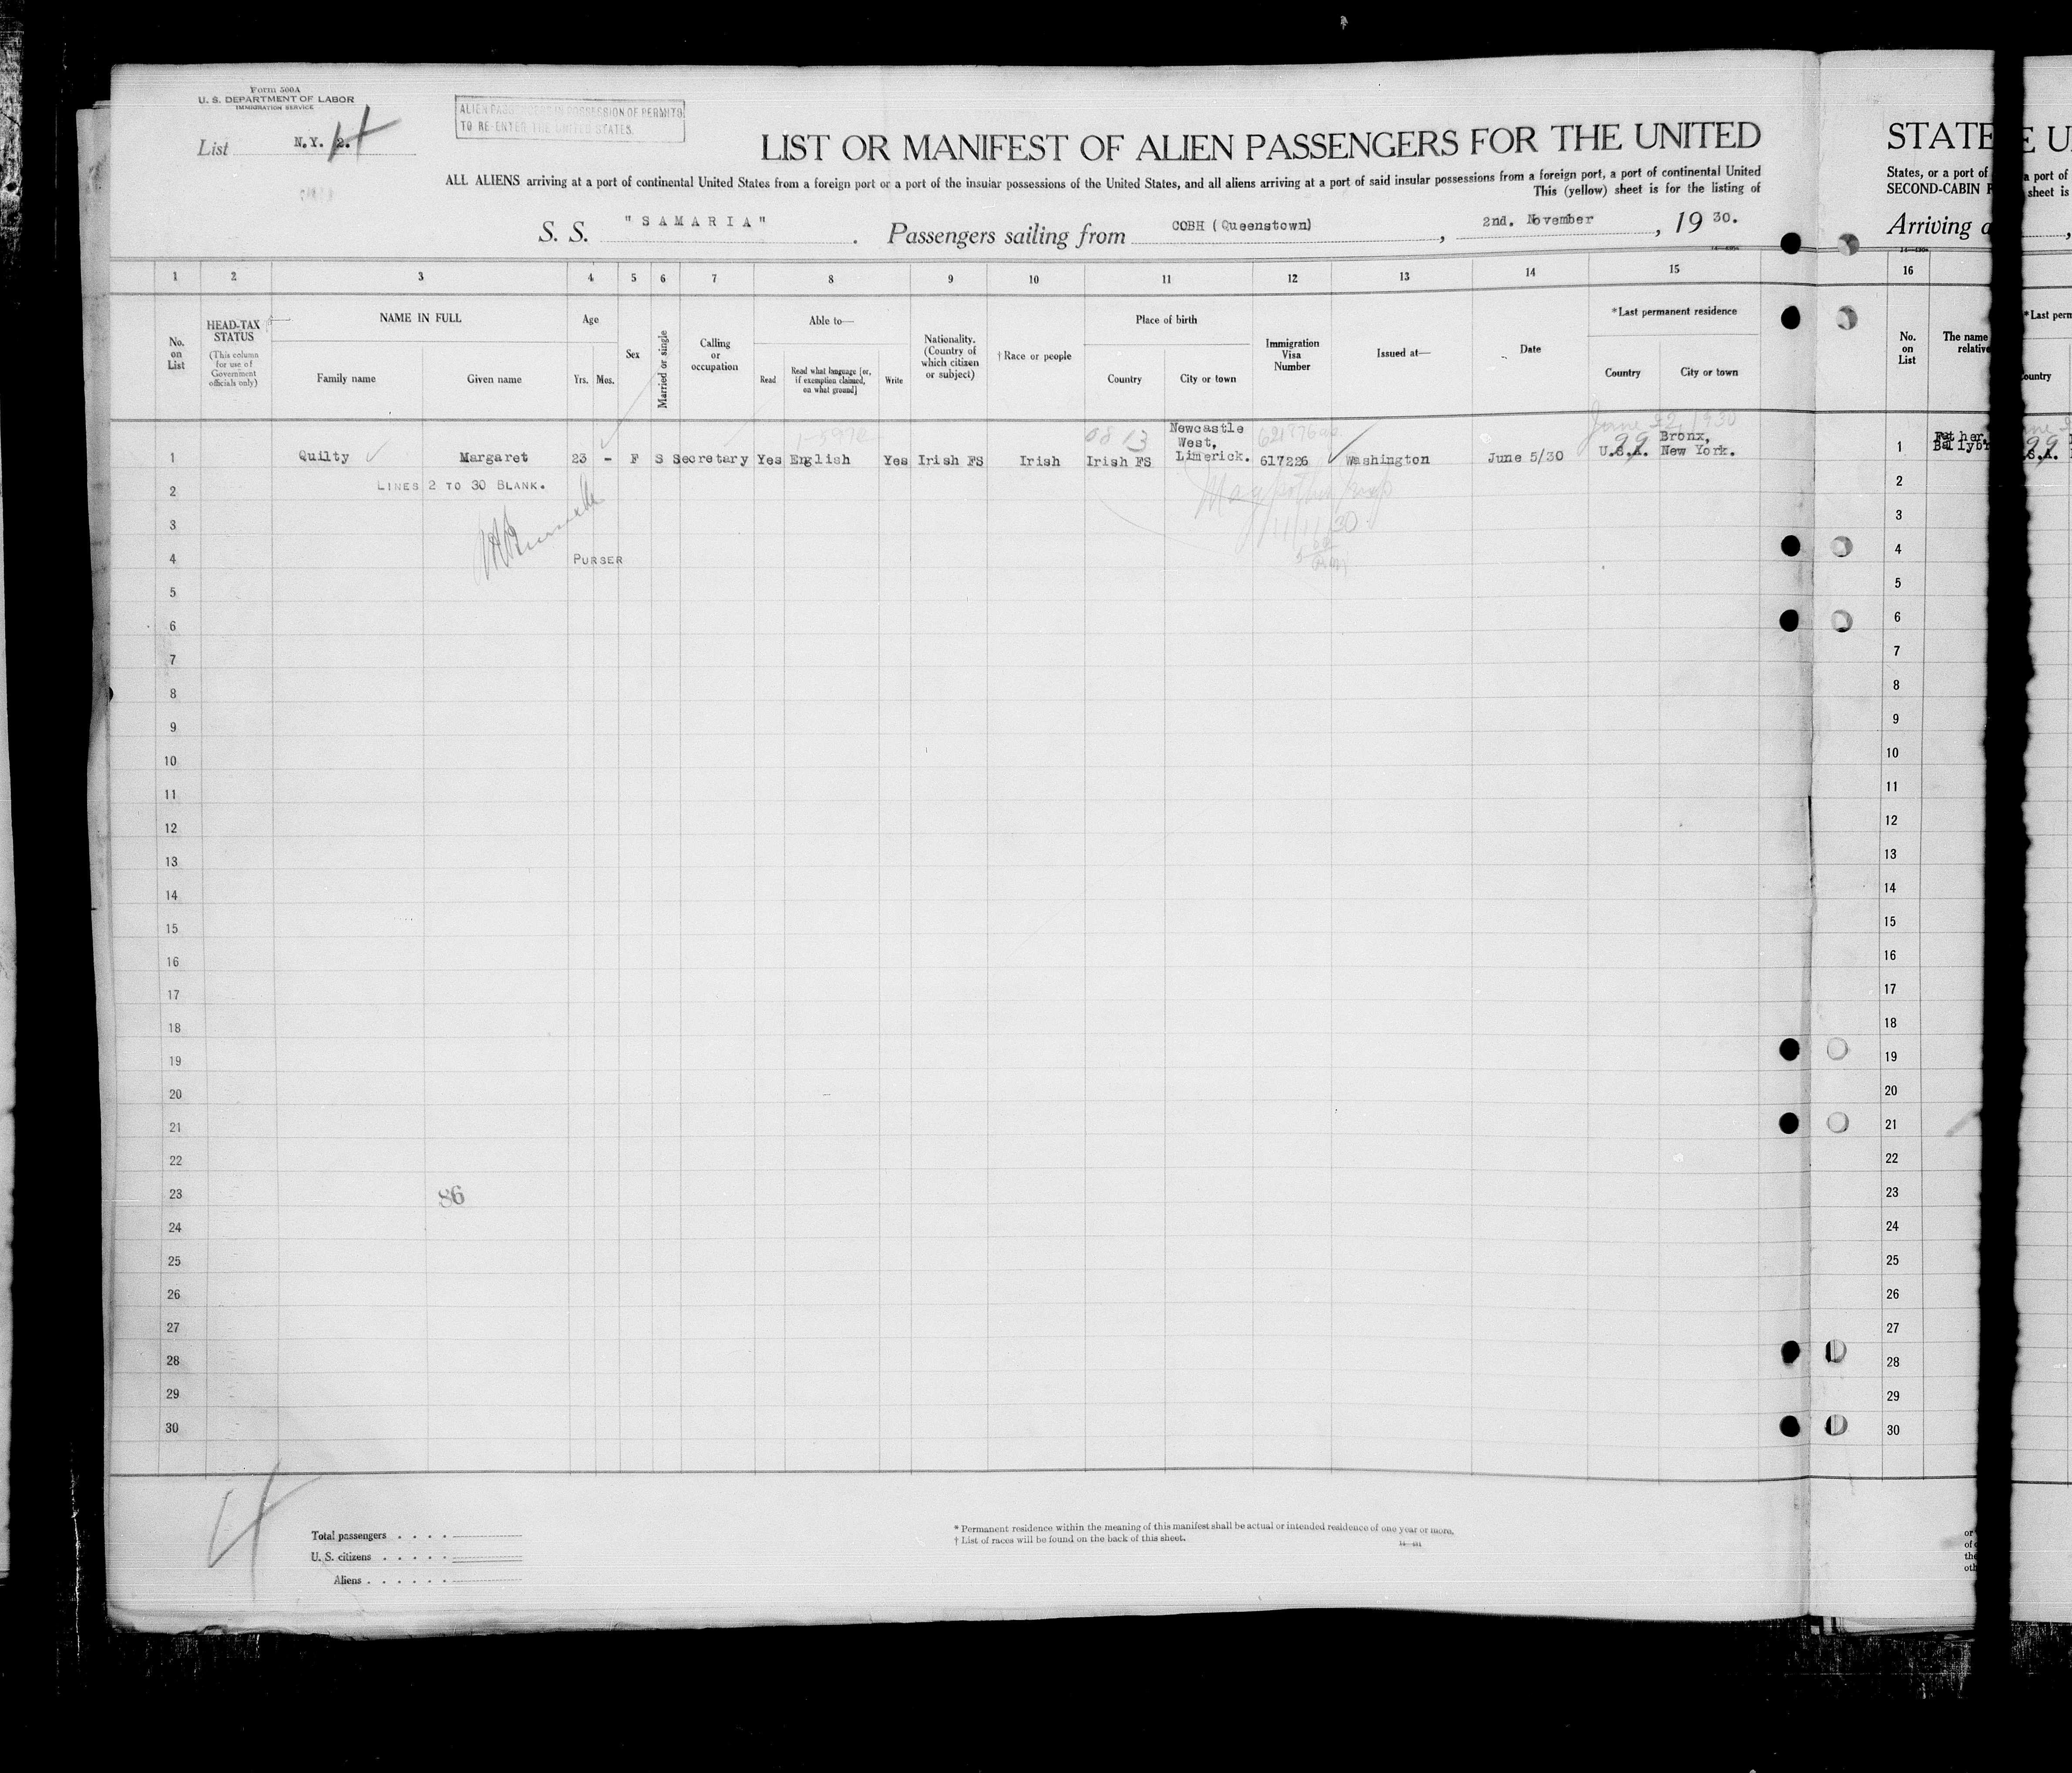 Form 500A
U. S. DEPARTMENT OF LABOR
IMMIGRATION SERVICE
List N.Y. 2.
ALIEN PASSENGERS IN POSSESSION OF PERMITS
TO RE-ENTER THE UNITED STATES.
LIST OR MANIFEST OF ALIEN PASSENGERS FOR THE UNITED
ALL ALIENS arriving at a port of continental United States from a foreign port or a port of the insular possessions of the United States, and all aliens arriving at a port of said insular possessions from a foreign port, a port of continental United
This (yellow) sheet is for the listing of
S. S. "SAMARIA". Passengers sailing from COBH (Queenstown), 2nd. November, 19 30.
1 2 3 4 5 6 7 8 9 10 11 12 13 14 15
No. on List
HEAD-TAX STATUS
(This column for use of Government officials only)
NAME IN FULL
Family name
Given name
Age
Yrs. Mos.
Sex
Married or single
Calling or occupation
Able to—
Read
Read what language [or, if exemption claimed, on what ground]
Write
Nationality. (Country of which citizen or subject)
† Race or people
Place of birth
Country
City or town
Immigration Visa Number
Issued at—
Date
*Last permanent residence
Country
City or town
June 22, 1930
1 Quilty Margaret 23 - F S Secretary Yes English Yes Irish FS Irish Irish FS Newcastle West, Limerick. 617226 Washington June 5/30 U.S.A. Bronx, New York.
2 LINES 2 TO 30 BLANK.
11/11/30
3
4 PURSER
5
6
7
8
9
10
11
12
13
14
15
16
17
18
19
20
21
22
23 86
24
25
26
27
28
29
30
Total passengers
U. S. citizens
Aliens
* Permanent residence within the meaning of this manifest shall be actual or intended residence of one year or more.
† List of races will be found on the back of this sheet.
STATE
States, or a port of
SECOND-CABIN
Arriving
16
No. on List
The name
relative
1 Father,
2
3
4
5
6
7
8
9
10
11
12
13
14
15
16
17
18
19
20
21
22
23
24
25
26
27
28
29
30
E U
a port of
sheet is
*Last perm
ountry
.S.A.